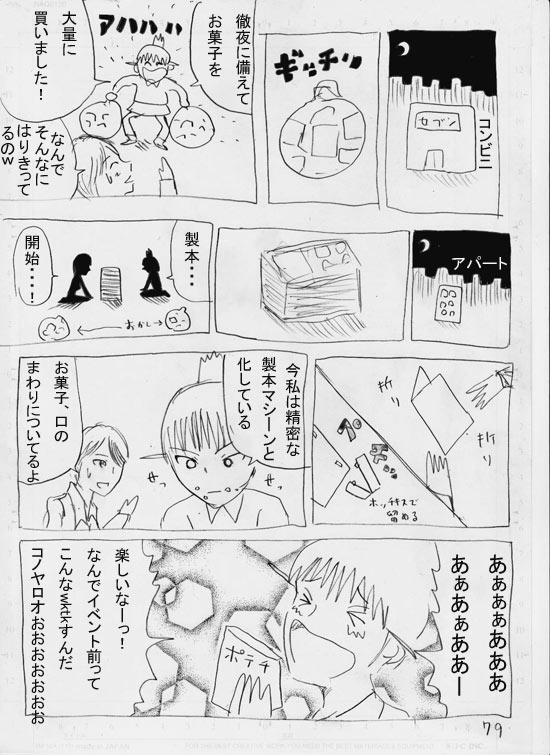 コンビニ
セブン
ギッチリ
徹夜に備えて
お菓子を
大量に
買いました！
アハハハ
なんで
そんなに
はりきって
るのｗ
アパート
製本・・・
開始・・・！
おかし
折り
折り
ホッチキスで
留める
今私は精密な
製本マシーンと
化している
せっ
せっ
お菓子、口の
まわりについてるよ
あぁぁぁあああ
あぁあぁああー
ポテチ
楽しいなーっ！
なんでイベント前って
こんなwktkすんだ
コノヤロオぉおぉおぉおぉお
79